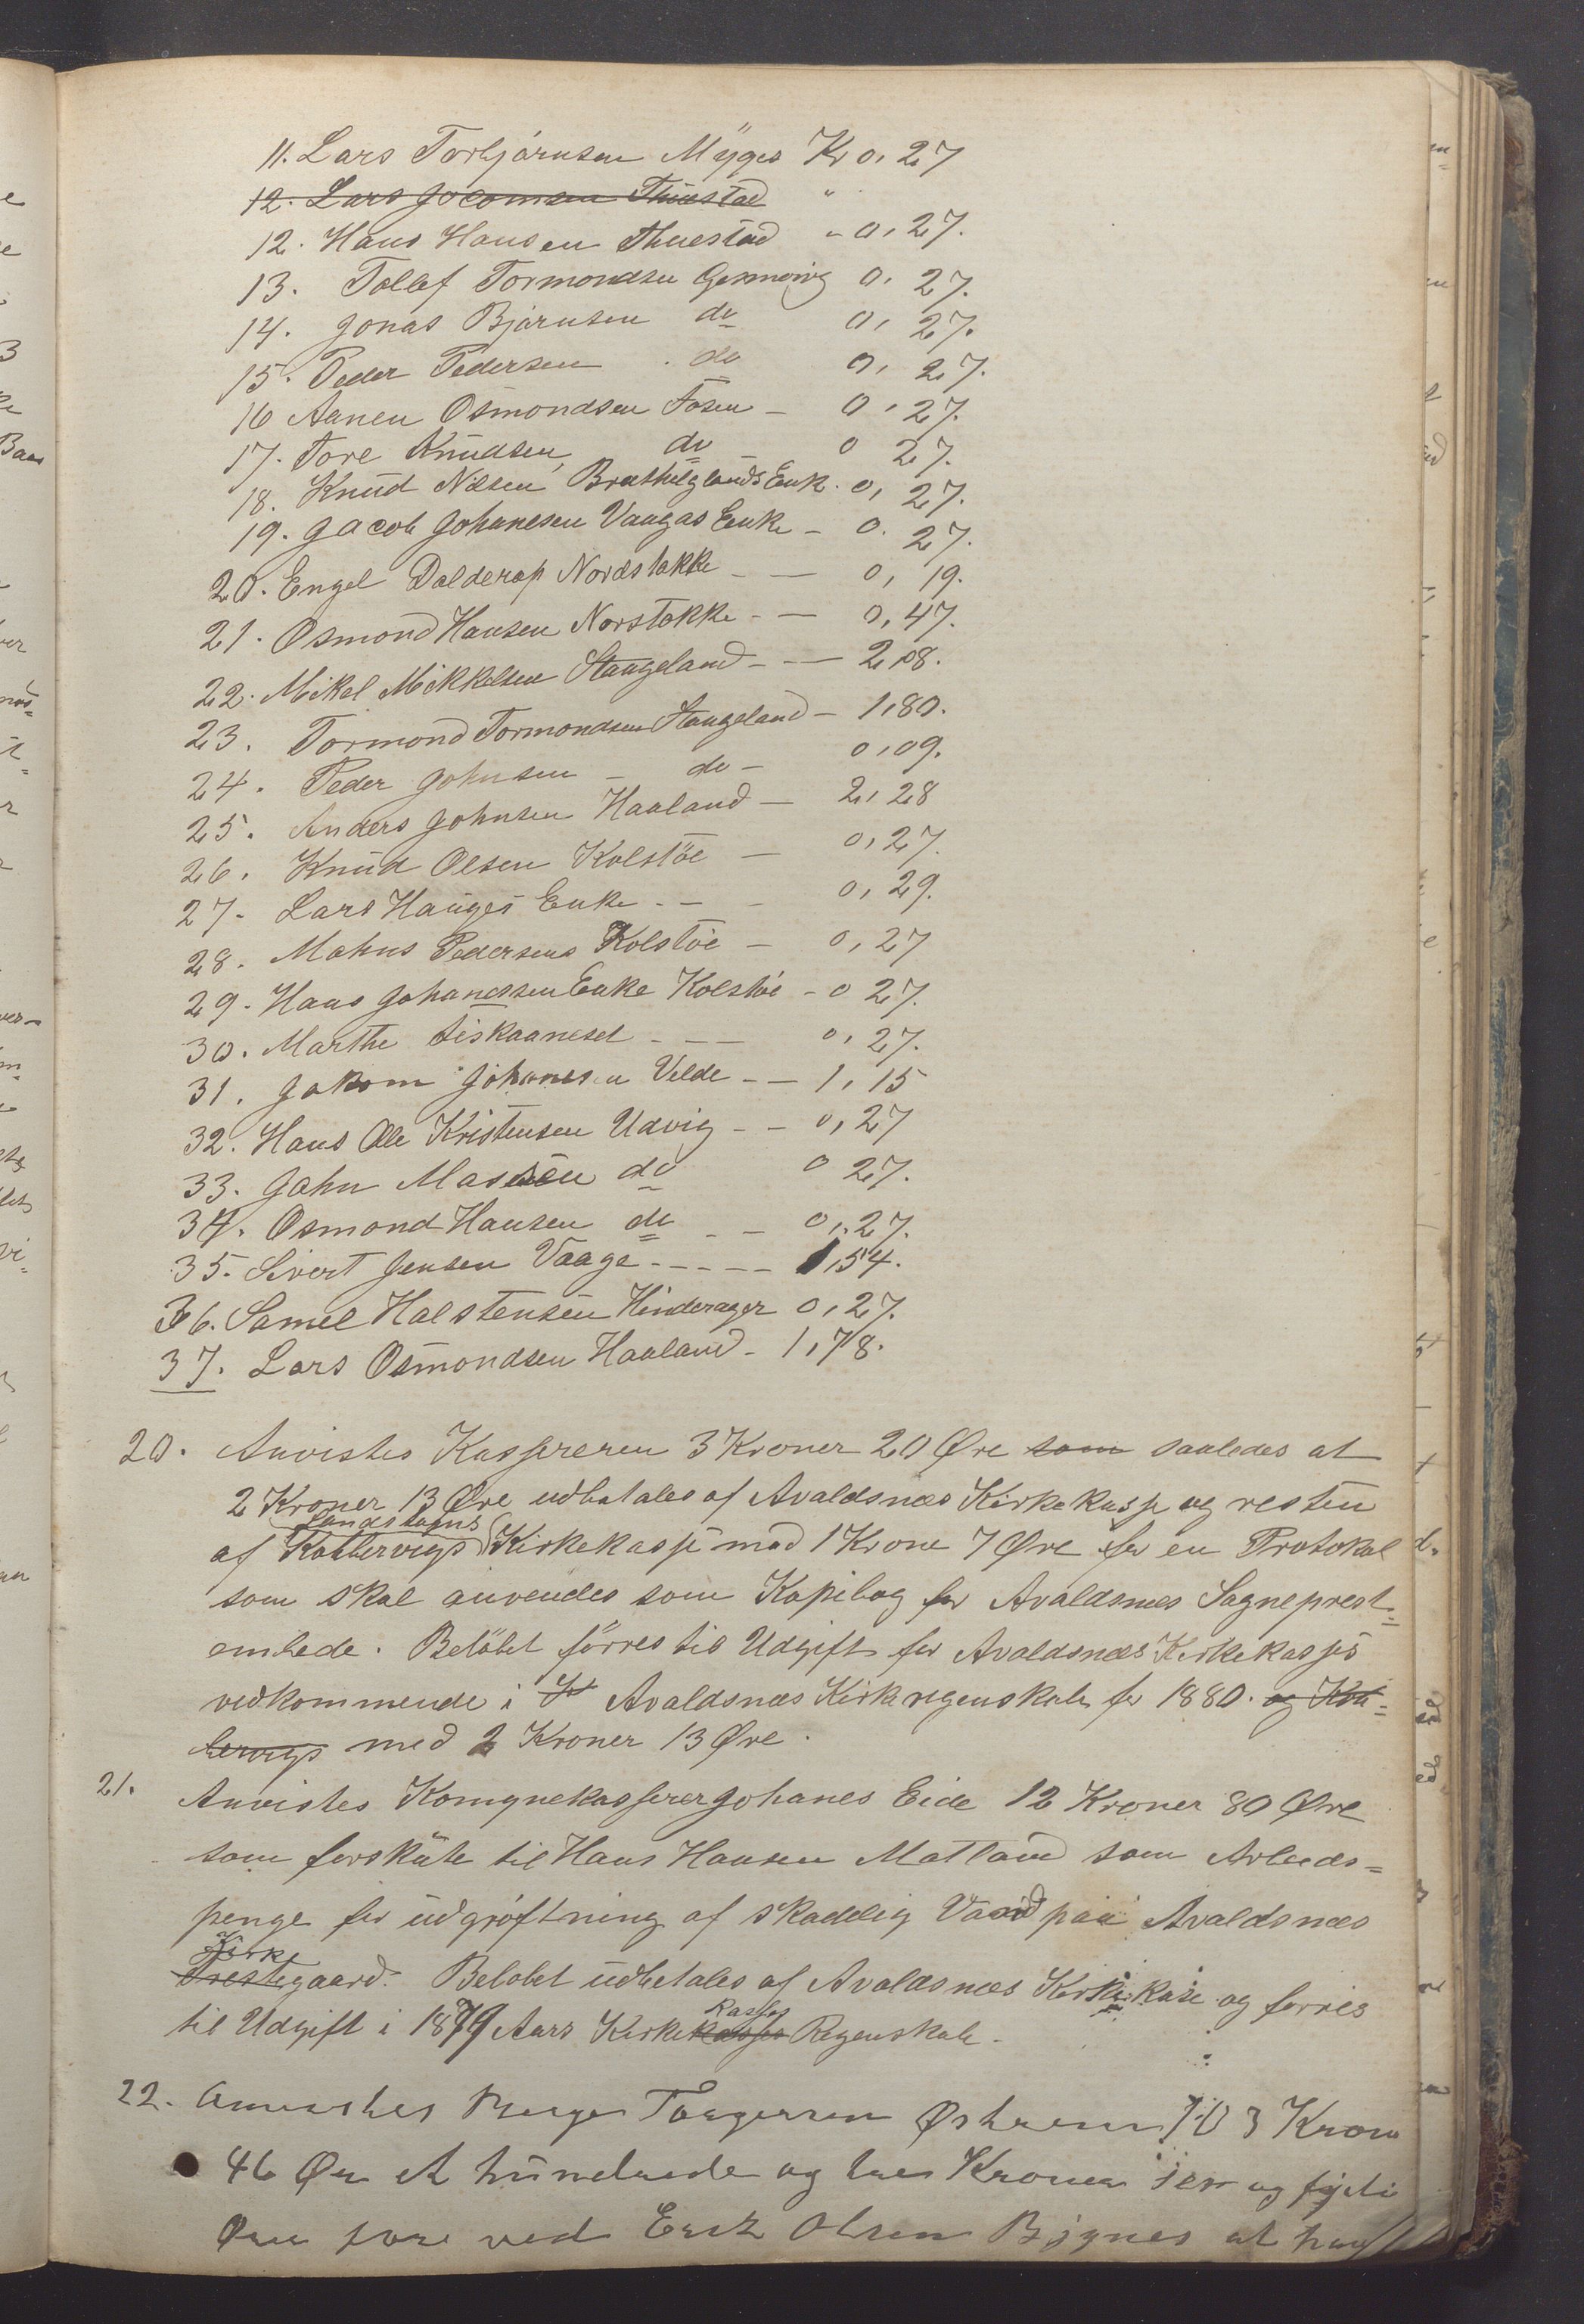 11. Lars Torbjörnsen Myges Kr 0,27
12. Lars Jocomsen Thuestad "
12. Hans Hansen Thuestad - 0,27.
13. Tollef Tormondsen Gesmervig 0,27.
14. Jonas Bjørnsen do 0,27.
15. Peder Pedersen do 0,27.
16 Aanen Osmondsen Fosen - 0,27.
17. Tore Knudsen, do 0 27.
18. Knud Nilsen Bratthelglands Enk. 0,27.
19. Jacob Johanesen Vaagas Enke - 0.27.
20. Engel Dalderop Nordstokke - — 0,19.
21. Osmond Hansen Norstokke - — 0,47.
22. Mikal Mikkelsen Stangeland - — 2,08.
23. Tormond Tormondsen Stangeland - 1,80.
24. Peder Johnsen - do - 0,09.
25. Anders Johnsen Haaland — 2,28
26. Knud Olsen Kolstöe — 0,27.
27. Lars Hauges Enke - — - 0,29.
28. Mahns Pedersens Kolstöe — 0,27
29. Hans Johanessen Enke Kolstöe - 0 27.
30. Marthe Fiskaaneset - — — 0,27.
31. Jakom Johanesen Velde - — 1,15
32. Hans Ole Kristensen Udvig - - 0,27
33. John Massen do 0 27.
34. Osmond Hansen do - - 0,27.
35. Sivert Jensen Vaage - - - - - 1,54.
36. Samel Halstensen Hinderager 0,27.
37. Lars Osmondsen Haaland - 1,78.
20. Anvistes Kassereren 3 Kroner 20 Øre som saaledes at
2 Kroner 13 Øre udbetales af Avaldsnæs Kirkekasse og resten
Landstagns
af Kobbervigs Kirkekasse med 1 Krone 7 Øre for en Protokol
som skal anvendes som Kopibog for Avaldsnæs Sogneprest=
embede. Belöbet förres til Udgift for Avaldsnæs Kirkekasses
vedkommende i K Avaldsnæs Kirkeregenskab for 1880. og Kob=
bervigs med 2 Kroner 13 Øre.
21. Anvistes Komynekasserer Johanes Eide 12 Kroner 80 Øre
som forskute til Hans Hansen Matland som Arbeds=
penge for udgröftning af skadelig Vand paa Avaldsnæs
Kirke
Prestegaard. Belobet udbetales af Avaldsnæs Kirkekase og forres
Kasses
til Udgift i 1879 Aars Kirkekasses Regenskab.
22. Anvistes Børge Torgersen Østrem 103 Kroner
46 Øre et hundrede og tre Kroner sex og fyrti
Øre for ved Erik Olsen Bygnes at have